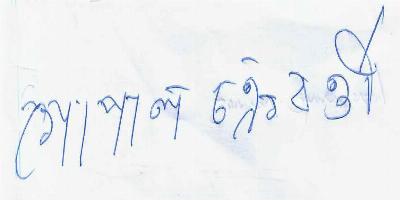 গোপাল চক্রবর্ত্তী